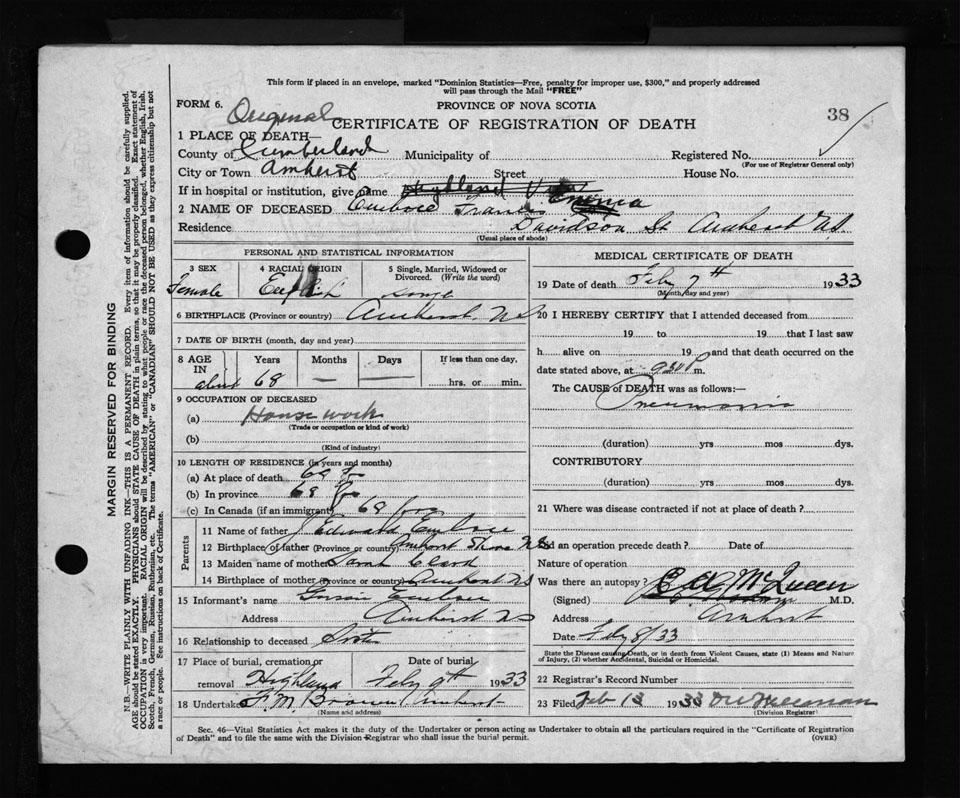 This form if placed in an envelope, marked "Dominion Statistics—Free, penalty for improper use, $300," and properly addressed
will pass through the Mail "FREE"
FORM 6.
PROVINCE OF NOVA SCOTIA
Original
38
CERTIFICATE OF REGISTRATION OF DEATH
1 PLACE OF DEATH—
County of Cumberland Municipality of Registered No.
(For use of Registrar General only)
City or Town Amherst Street House No.
If in hospital or institution, give name Highland
2 NAME OF DECEASED Frances Emma
Residence Davidson St Amherst N.S.
(Usual place of abode)
PERSONAL AND STATISTICAL INFORMATION
3 SEX
Female
4 RACIAL ORIGIN
English
5 Single, Married, Widowed or
Divorced. (Write the word)
Single
6 BIRTHPLACE (Province or country) Amherst N S
7 DATE OF BIRTH (month, day and year)
8 AGE IN Years Months Days If less than one day,
about 68 — — hrs. or min.
9 OCCUPATION OF DECEASED
(a) House work
(Trade or occupation or kind of work)
(b)
(Kind of industry)
10 LENGTH OF RESIDENCE (in years and months)
(a) At place of death 68
(b) In province 68 yrs
(c) In Canada (if an immigrant) 68 yrs
Parents
11 Name of father Edward
12 Birthplace of father (Province or country) Amherst Shore N S
13 Maiden name of mother Sarah
14 Birthplace of mother (Province or country) Amherst N S
15 Informant's name
Address Amherst N S
16 Relationship to deceased Sister
17 Place of burial, cremation or Date of burial
removal Highland Feby 9th 1933
18 Undertaker F. M. Brown Amherst
(Name and address)
MEDICAL CERTIFICATE OF DEATH
19 Date of death Feby 7th 1933
(Month, day and year)
20 I HEREBY CERTIFY that I attended deceased from
19 to 19 that I last saw
h alive on 19 and that death occurred on the
date stated above, at m.
The CAUSE of DEATH was as follows:—
Pneumonia
(duration) yrs mos dys.
CONTRIBUTORY
(duration) yrs mos dys.
21 Where was disease contracted if not at place of death?
Did an operation precede death? Date of
Nature of operation
Was there an autopsy?
(Signed) McQueen M.D.
Address Amherst
Date Feby 8/33
State the Disease causing Death, or in death from Violent Causes, state (1) Means and Nature
of Injury, (2) whether Accidental, Suicidal or Homicidal.
22 Registrar's Record Number
23 Filed Feb 13 1933
(Division Registrar)
Sec. 46—Vital Statistics Act makes it the duty of the Undertaker or person acting as Undertaker to obtain all the particulars required in the "Certificate of Registration
of Death" and to file the same with the Division Registrar who shall issue the burial permit.
(OVER)
MARGIN RESERVED FOR BINDING
N.B.—WRITE PLAINLY WITH UNFADING INK—THIS IS A PERMANENT RECORD. Every item of information should be carefully supplied.
AGE should be stated EXACTLY. PHYSICIANS should STATE CAUSE OF DEATH in plain terms, so that it may be properly classified. Exact statement of
OCCUPATION is very important. RACIAL ORIGIN will be described by stating to what people or race the deceased person belonged, whether English, Irish,
Scotch, French, German, Russian, Ruthenian, etc. The terms "AMERICAN" or "CANADIAN" SHOULD NOT BE USED as they express citizenship but not
a race or people. See instructions on back of Certificate.